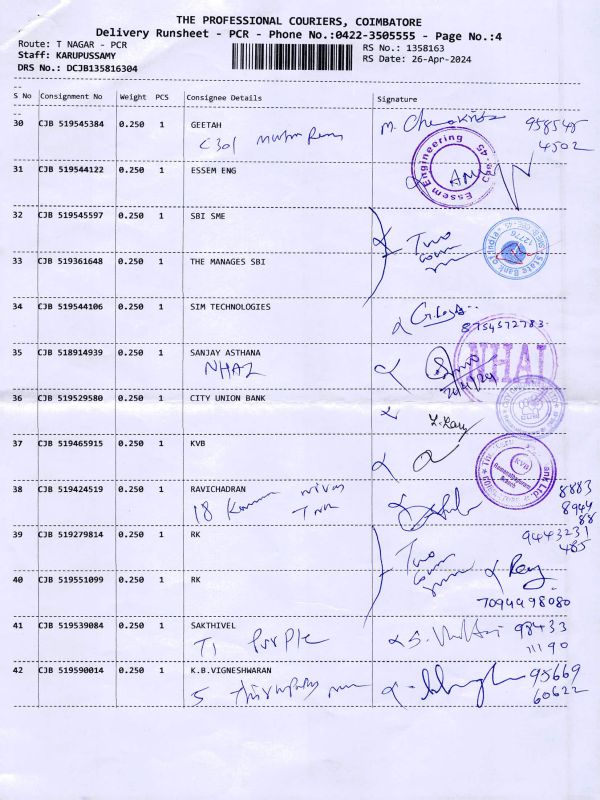 THE PROFESSIONAL COURIERS, COIMBATORE
Delivery Runsheet - PCR - Phone No.:0422-3505555 - Page No.:4
Route: T NAGAR - PCR
RS No.: 1358163
Staff: KARUPUSSAMY
RS Date: 26-Apr-2024
DRS No.: DCJB135816304
S No Consignment No Weight PCS Consignee Details Signature
30 CJB 519545384 0.250 1 GEETAH
C301
958545
4502
31 CJB 519544122 0.250 1 ESSEM ENG
Essem Engineering
32 CJB 519545597 0.250 1 SBI SME
Two
State Bank of India
33 CJB 519361648 0.250 1 THE MANAGES SBI
34 CJB 519544106 0.250 1 SIM TECHNOLOGIES
8754572783
35 CJB 518914939 0.250 1 SANJAY ASTHANA
NHAI
NHAI
36 CJB 519529580 0.250 1 CITY UNION BANK
37 CJB 519465915 0.250 1 KVB
KVB
38 CJB 519424519 0.250 1 RAVICHADRAN
18
8883
8944
88
39 CJB 519279814 0.250 1 RK
9443231
485
Two
40 CJB 519551099 0.250 1 RK
7094498080
41 CJB 519539084 0.250 1 SAKTHIVEL
T1 Purple
98433
11190
42 CJB 519590014 0.250 1 K.B.VIGNESHWARAN
5
95669
60622